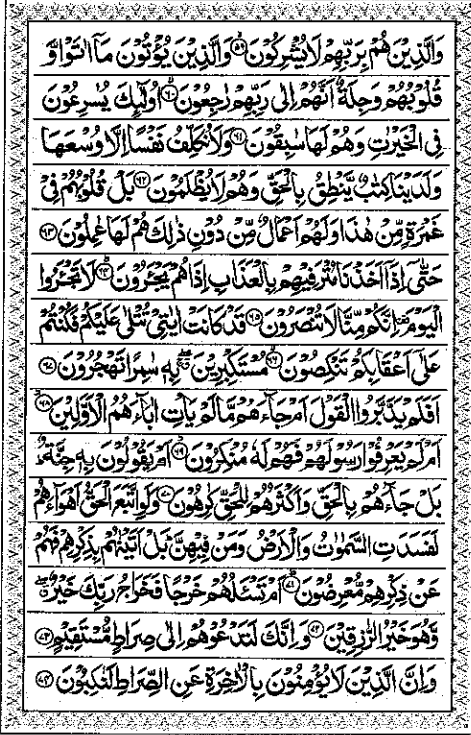 وَالَّذِيْنَ هُمْ بِرَبِّهِمْ لَا يُشْرِكُوْنَ ﴿۵۹﴾ وَالَّذِيْنَ يُؤْتُوْنَ مَاۤ اٰتَوْا وَّ
قُلُوْبُهُمْ وَجِلَةٌ اَنَّهُمْ اِلٰى رَبِّهِمْ رٰجِعُوْنَ ﴿۶۰﴾ اُولٰٓئِكَ يُسٰرِعُوْنَ
فِى الْخَيْرٰتِ وَهُمْ لَهَا سٰبِقُوْنَ ﴿۶۱﴾ وَلَا نُكَلِّفُ نَفْسًا اِلَّا وُسْعَهَا
وَلَدَيْنَا كِتٰبٌ يَّنْطِقُ بِالْحَقِّ وَهُمْ لَا يُظْلَمُوْنَ ﴿۶۲﴾ بَلْ قُلُوْبُهُمْ فِىْ
غَمْرَةٍ مِّنْ هٰذَا وَلَهُمْ اَعْمَالٌ مِّنْ دُوْنِ ذٰلِكَ هُمْ لَهَا عٰمِلُوْنَ ﴿۶۳﴾
حَتّٰۤى اِذَاۤ اَخَذْنَا مُتْرَفِيْهِمْ بِالْعَذَابِ اِذَا هُمْ يَجْـَٔرُوْنَ ﴿۶۴﴾ لَا تَجْـَٔرُوا
الْيَوْمَ اِنَّكُمْ مِّنَّا لَا تُنْصَرُوْنَ ﴿۶۵﴾ قَدْ كَانَتْ اٰيٰتِىْ تُتْلٰى عَلَيْكُمْ فَكُنْتُمْ
عَلٰٓى اَعْقَابِكُمْ تَنْكِصُوْنَ ﴿۶۶﴾ مُسْتَكْبِرِيْنَ بِهٖ سٰمِرًا تَهْجُرُوْنَ ﴿۶۷﴾
اَفَلَمْ يَدَّبَّرُوا الْقَوْلَ اَمْ جَآءَهُمْ مَّا لَمْ يَاْتِ اٰبَآءَهُمُ الْاَوَّلِيْنَ ﴿۶۸﴾
اَمْ لَمْ يَعْرِفُوْا رَسُوْلَهُمْ فَهُمْ لَهٗ مُنْكِرُوْنَ ﴿۶۹﴾ اَمْ يَقُوْلُوْنَ بِهٖ جِنَّةٌ
بَلْ جَآءَهُمْ بِالْحَقِّ وَاَكْثَرُهُمْ لِلْحَقِّ كٰرِهُوْنَ ﴿۷۰﴾ وَلَوِ اتَّبَعَ الْحَقُّ اَهْوَآءَهُمْ
لَفَسَدَتِ السَّمٰوٰتُ وَالْاَرْضُ وَمَنْ فِيْهِنَّ بَلْ اَتَيْنٰهُمْ بِذِكْرِهِمْ فَهُمْ
عَنْ ذِكْرِهِمْ مُّعْرِضُوْنَ ﴿۷۱﴾ اَمْ تَسْـَٔلُهُمْ خَرْجًا فَخَرَاجُ رَبِّكَ خَيْرٌ
وَّهُوَ خَيْرُ الرّٰزِقِيْنَ ﴿۷۲﴾ وَاِنَّكَ لَتَدْعُوْهُمْ اِلٰى صِرَاطٍ مُّسْتَقِيْمٍ ﴿۷۳﴾
وَاِنَّ الَّذِيْنَ لَا يُؤْمِنُوْنَ بِالْاٰخِرَةِ عَنِ الصِّرَاطِ لَنٰكِبُوْنَ ﴿۷۴﴾